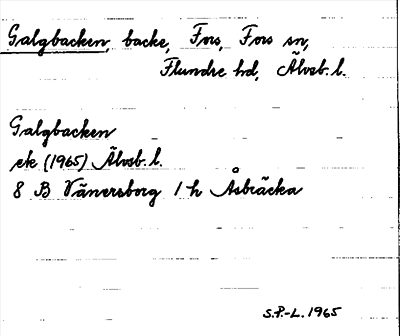 Galgbacken, backe, Fors, Fors sn,
Flundre hd, Älvsb. l.
Galgbacken
ek (1965) Älvsb. l.
8 B Vänersborg 1 h Åsbräcka
S.P.-L. 1965